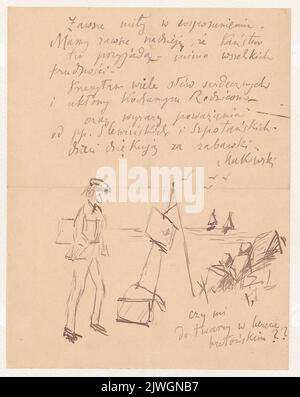 Zawsze miły w wspomnieniu.
Mamy zawsze nadzieję, że Państwo
tu przyjadą mimo wszelkich
trudności.
Przesyłam wiele słów serdecznych
i ukłony Kochanym Rodzicom
oraz wyrazy poważania
od pp. Slewińskich i Szpotańskich.
dzieci dziękują za zabawki.
Makowski
czy mi
do twarzy w berecie
bretońskim??
alamy
Image ID: 2WJGNB7
www.alamy.com